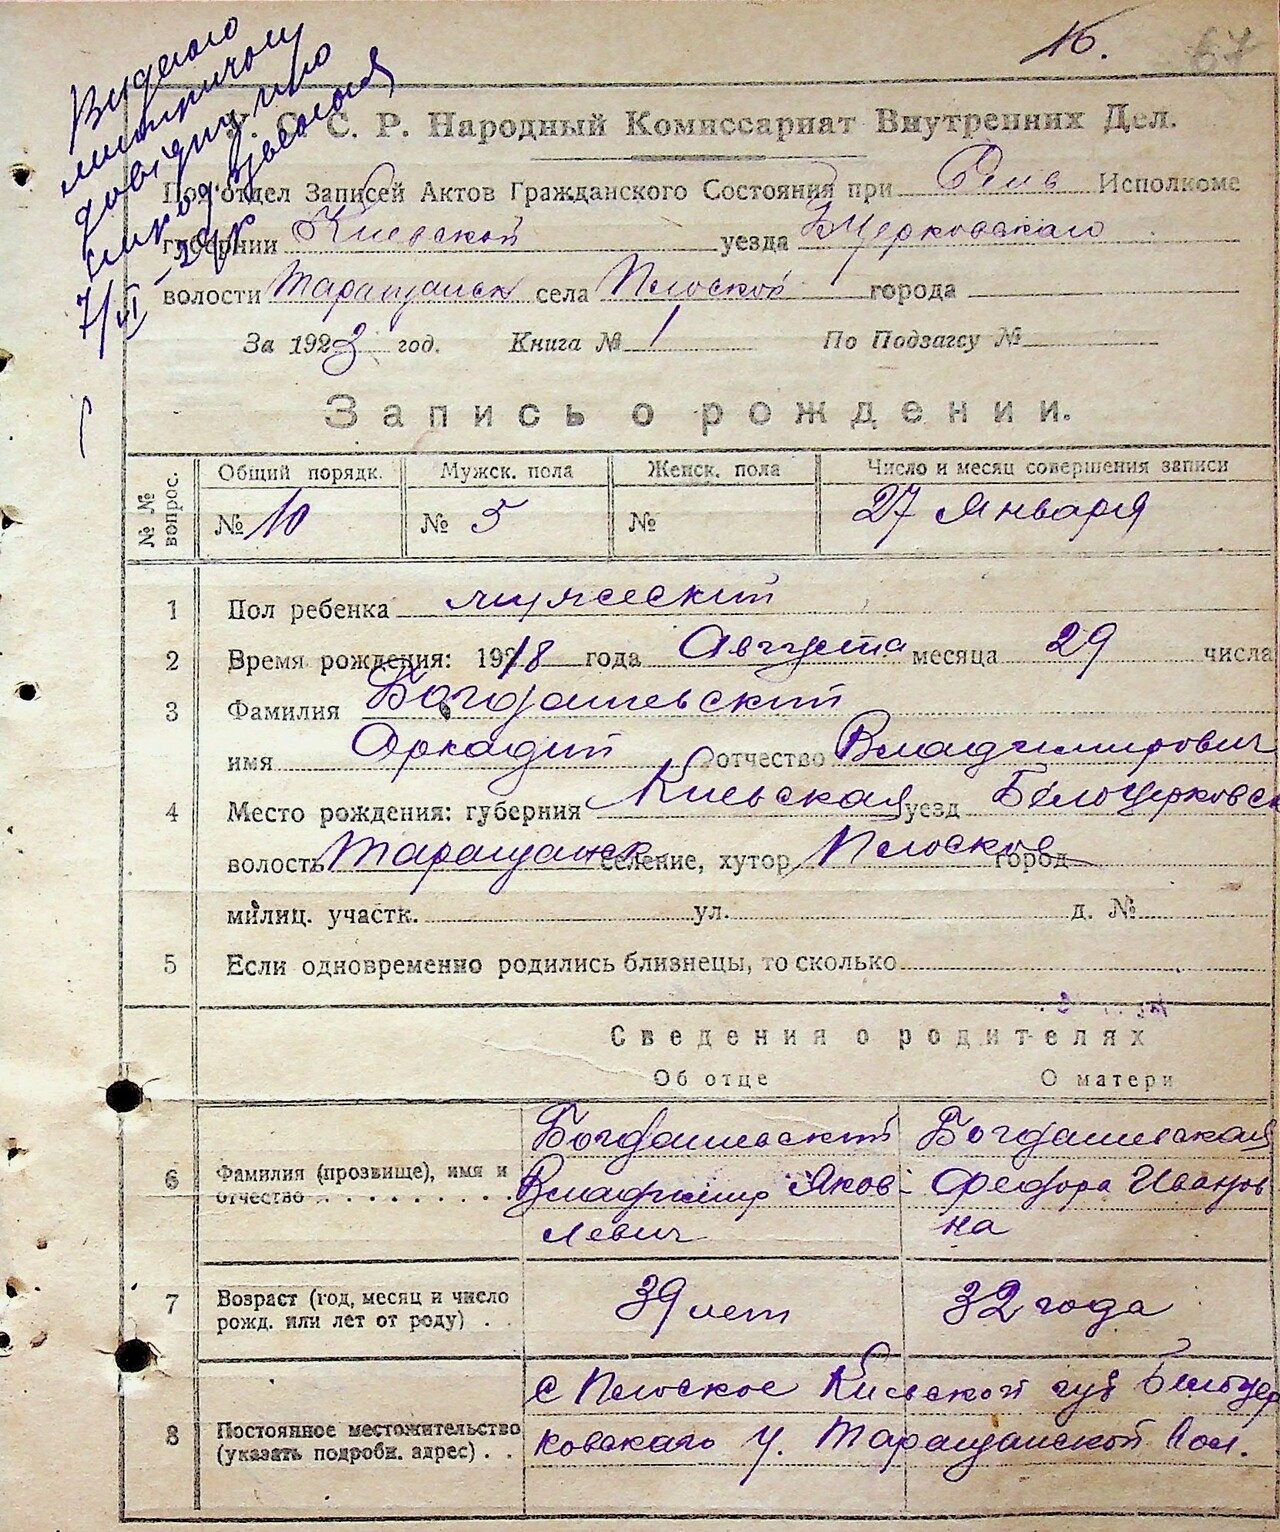 16.
67
Видано
метричну
довідку про
народження
7/VI – 29 р
У. С. С. Р. Народный Комиссариат Внутренних Дел.
Под'отдел Записей Актов Гражданского Состояния при Исполкоме
губернии Киевской уезда БЦерковскаго
волости Таращанск села Плоской города
За 1923 год. Книга № 1 По Подзагсу №
Запись о рождении.
№№ вопрос. Общий порядк. Мужск. пола Женск. пола Число и месяц совершения записи
№ 10 № 5 № 27 Января
1 Пол ребенка мужеский
2 Время рождения: 1918 года Августа месяца 29 числа
3 Фамилия Богдашевский
имя Аркадий отчество Владимирович
4 Место рождения: губерния Киевская уезд Белоцерковск
волость Таращанск селение, хутор Плоское город
милиц. участк. ул. д. №
5 Если одновременно родились близнецы, то сколько
Сведения о родителях
Об отце О матери
6 Фамилия (прозвище), имя и отчество
Богдашевский Богдашевская
Владимир Яков- Федора Иванов
левич на
7 Возраст (год, месяц и число рожд. или лет от роду) . . 39 лет 32 года
8 Постоянное местожительство (указать подробн. адрес) . .
с Плоское Киевской губ Белоцер
ковскаго у. Таращанской вол.